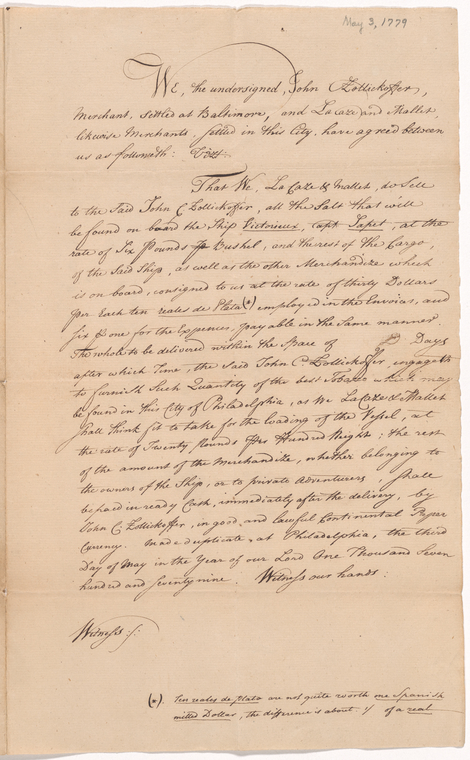 May 3, 1779
We, the undersigned, John C Zollickoffer,
Merchant, settled at Baltimore, and Lacaze and Mallet,
likewise Merchants, settled in this City, have agreed between
us as followeth: Vizt.
That We, La Caze & Mallet, do Sell
to the Said John C Zollickoffer, all the Salt that will
be found on board the Ship Victorieux, Capt. Sapet, at the
rate of Six Pounds Bushel, and the rest of the Cargo,
of the Said Ship, as well as the other Merchandize which
is on board, consigned to us at the rate of thirty Dollars
per Each ten reales de Plata (*) employed in the Invoice, and
six & one for the Expences, payable in the Same manner.
The whole to be delivered within the Space of Days
after which Time, the Said John C. Zollickoffer, engageth
to furnish Such Quantity of the best Tobacco which may
be found in this City of Philadelphia, as We La Caze & Mallet
shall think fit to take for the loading of the Vessel, at
the rate of Twenty Pounds Per Hundred Weight; the rest
of the amount of the Merchandize, whether belonging to
the owners of the Ship, or to private Adventurers, Shall
be paid in ready Cash, immediately after the delivery, by
John C Zollickoffer, in good, and lawful Continental Paper
Curency. Made duplicate, at Philadelphia, the third
Day of May in the Year of our Lord One Thousand Seven
hundred and Seventy nine. Witness our hands:
Witness :/:
(*). ten reales de plata are not quite worth one Spanish
milled Dollar, the difference is about of a real